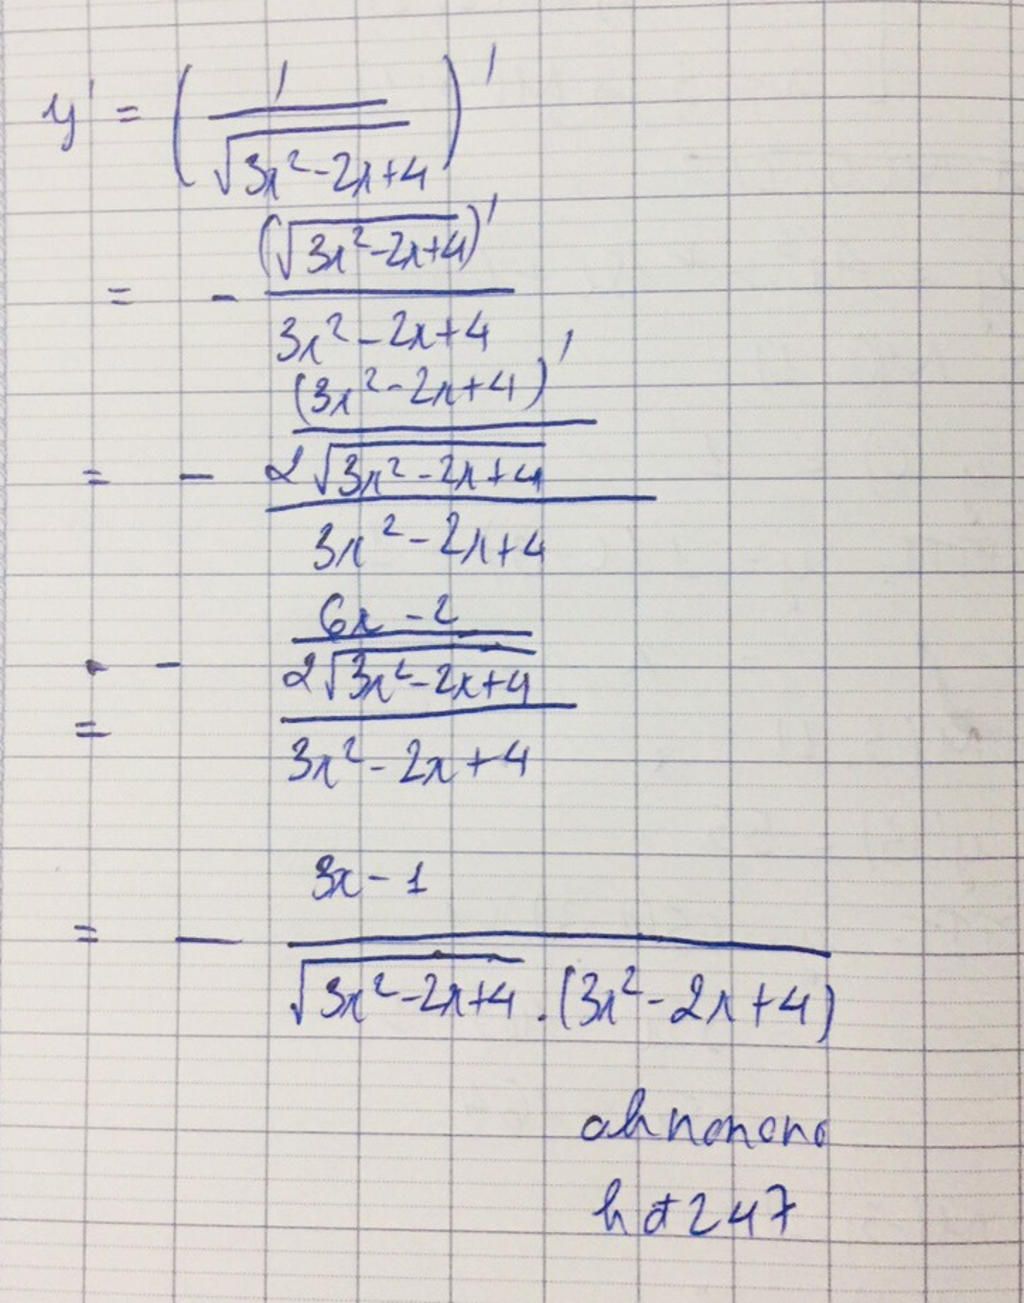 y' = (1 / √(3x² - 2x + 4))'
= - (√(3x² - 2x + 4))' / (3x² - 2x + 4)
= - ((3x² - 2x + 4)' / (2√(3x² - 2x + 4))) / (3x² - 2x + 4)
= - ((6x - 2) / (2√(3x² - 2x + 4))) / (3x² - 2x + 4)
= - (3x - 1) / (√(3x² - 2x + 4) . (3x² - 2x + 4))
ahnonono
hd247